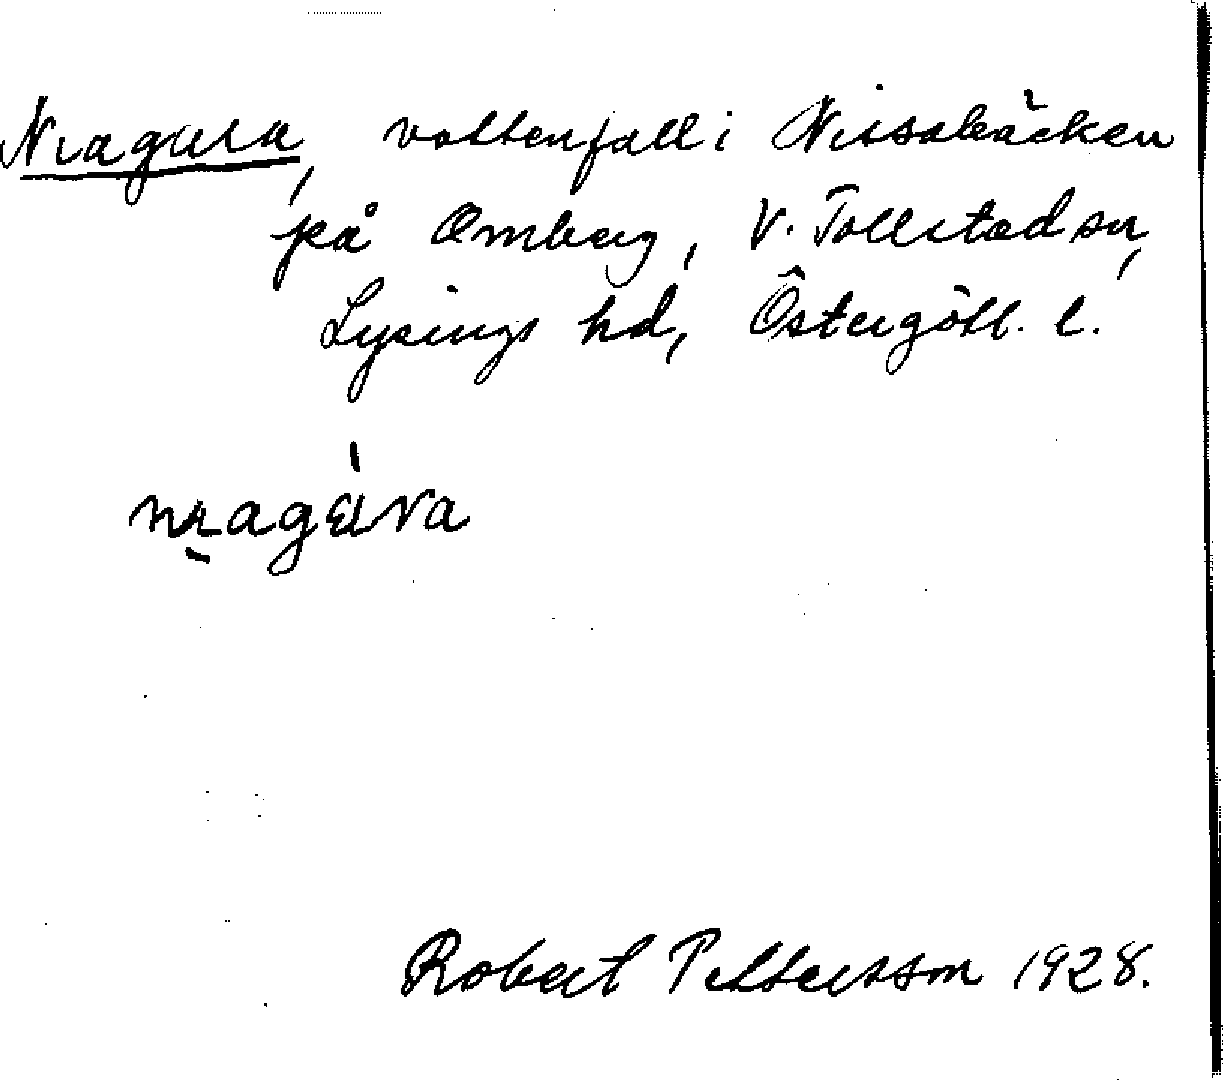 Niagara, vattenfall i Nissabäcken
på Omberg, V. Tollstad sn,
Lysings hd, Östergötl. l.
Robert Pettersson 1928.